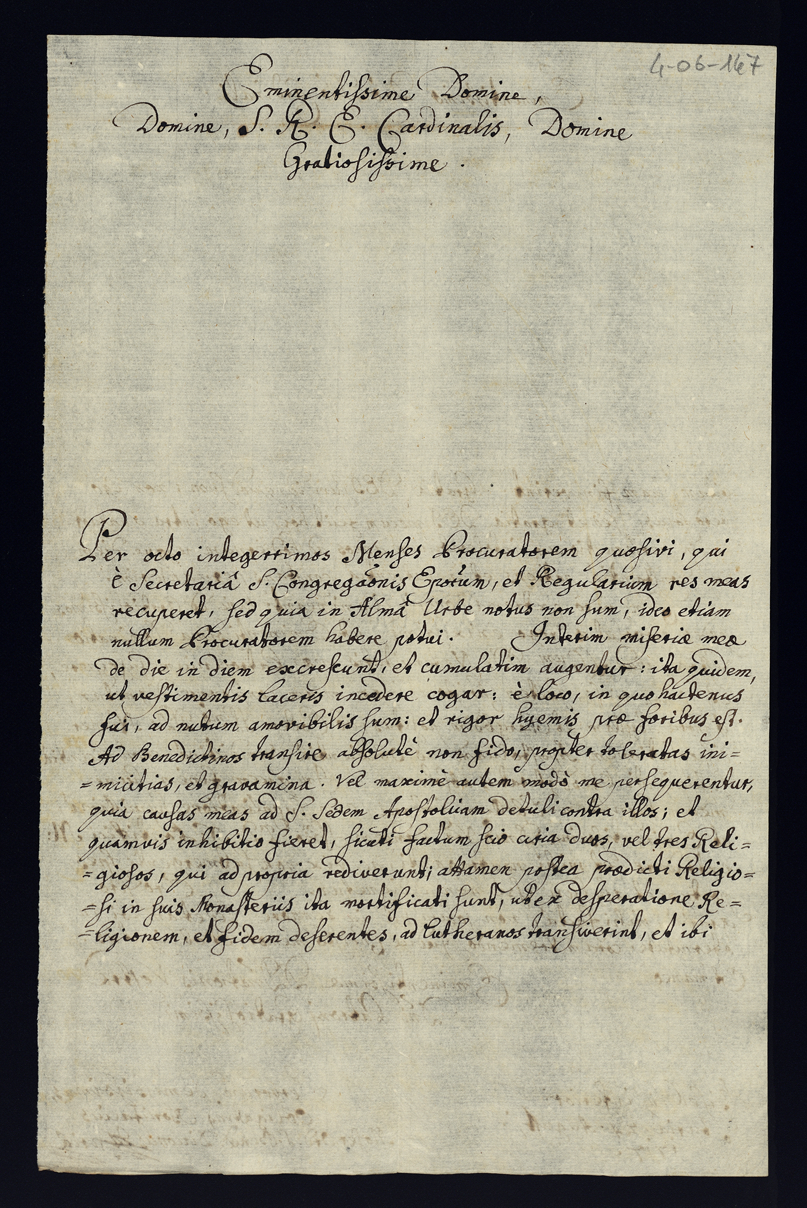 4-06-147
Eminentissime Domine,
Domine, S. R. E. Cardinalis, Domine
Gratiosissime.
Per octo integerrimos Menses Procuratorem quæsivi, qui
è Secretariâ S. Congregãonis Eporum, et Regularium res meas
recuperet, sed quia in Almâ Urbe notus non sum, ideo etiam
nullum Procuratorem habere potui. Interim miseriæ meæ
de die in diem excrescunt, et cumulatim augentur: ita quidem,
ut vestimentis laceris incedere cogar: è loco, in quo hactenus
fui, ad nutum amovibilis sum: et rigor hyemis præ foribus est.
Ad Benedictinos transire absolutè non fido, propter toleratas ini=
=micitias, et gravamina. Vel maximè autem modò me persequerentur,
quia causas meas ad S. Sedem Apostolicam detuli contra illos; et
quamvis inhibitio fieret, sicuti factum scio circa duos, vel tres Reli=
=giosos, qui ad propria rediverunt; attamen postea prædicti Religio=
=si in suis Monasteriis ita mortificati sunt, ut ex desperatione Re=
=ligionem, et fidem deserentes, ad Lutheranos transiverint, et ibi